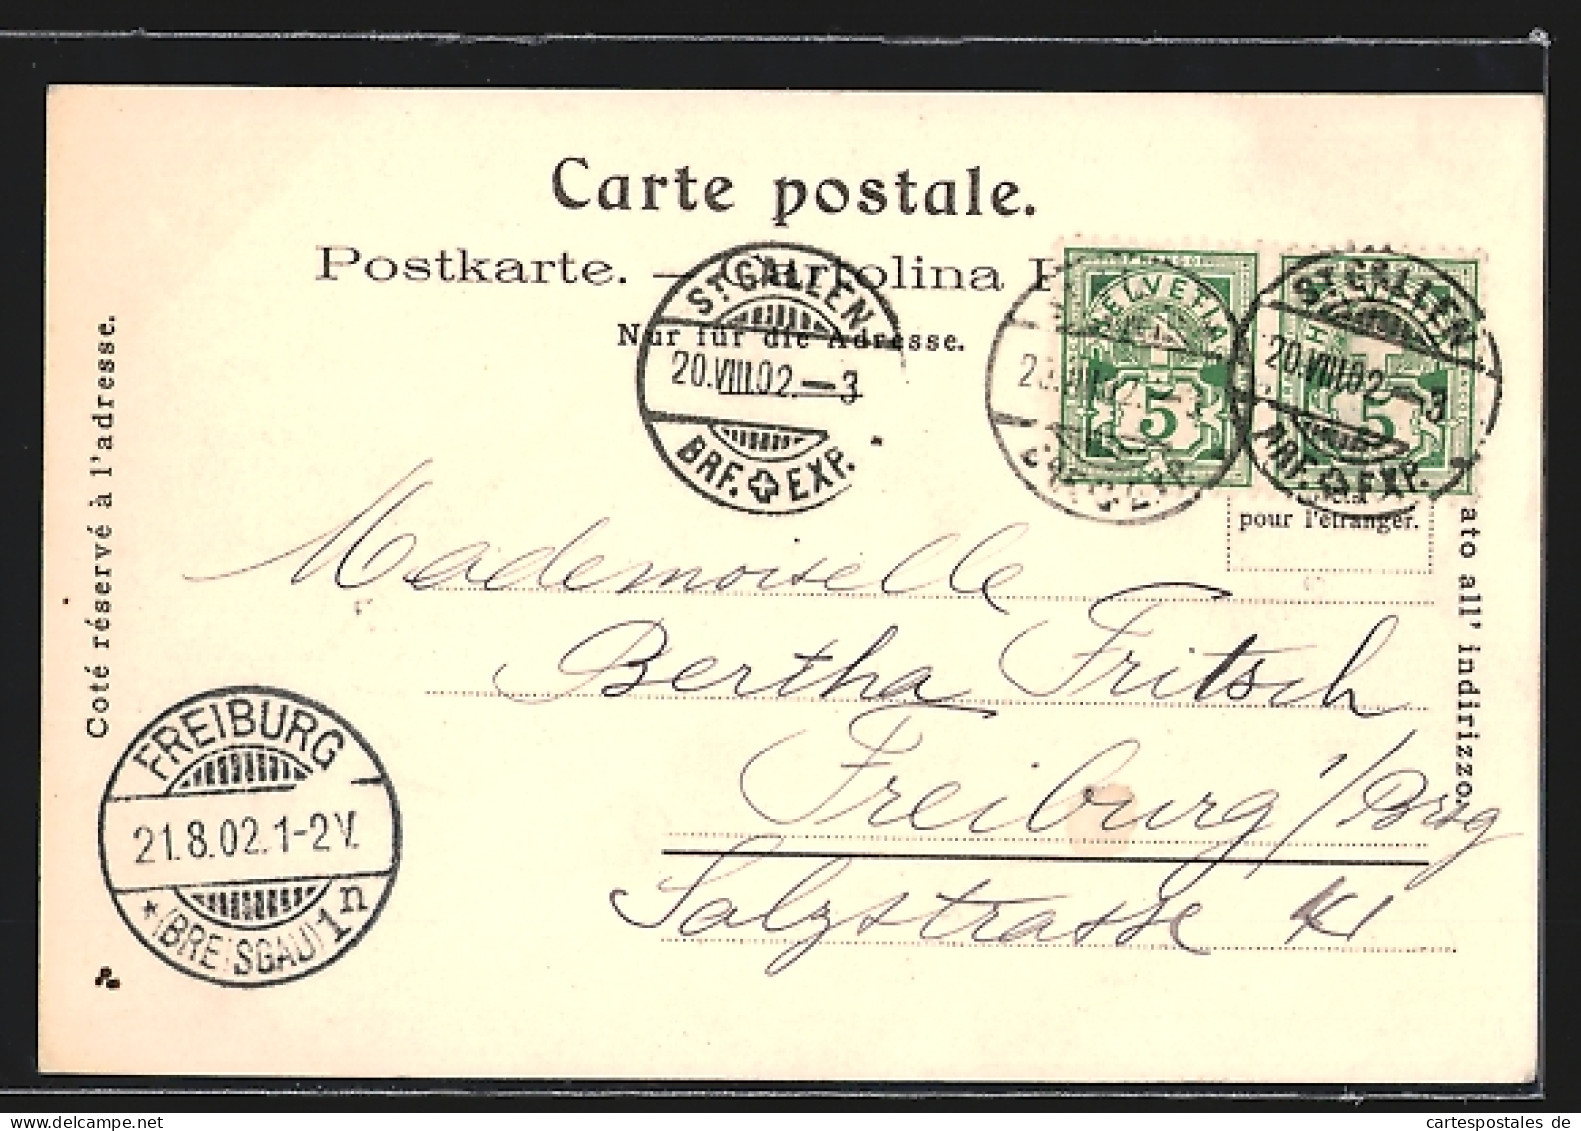 Carte postale.
Postkarte. — Cartolina
Nur für die Adresse.
Coté réservé à l'adresse.
ST. GALLEN
20.VIII.02.—3
BRF. EXP.
HELVETIA
5
ST. GALLEN
20.VIII.02.—3
BRF. EXP.
5
pour l'étranger.
ato all' indirizzo.
Mademoiselle
Bertha Fritsch
Freiburg i/Brsg
Salzstrasse 41
FREIBURG
21.8.02.1-2V.
* (BREISGAU) 1 n
cartespostales de